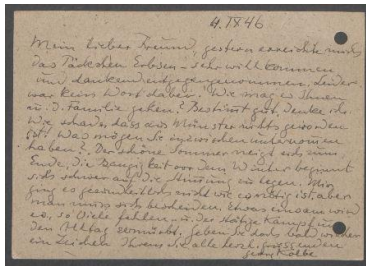 4. IX 46
Mein lieber Freund, gestern erreichte mich
das Päckchen Erbsen – sehr willkommen
und dankend entgegengenommen. Leider
war kein Wort dabei. Wie mag es Ihnen
u. d. Familie gehen? Bestimmt gut, denke ich.
Wie schade, dass aus Münster nichts geworden
ist! Was mögen Sie inzwischen unternommen
haben? Der schöne Sommer neigt sich zum
Ende, die Bangigkeit vor dem Winter beginnt
sich schwer auf die Stimmung zu legen. Mir
ging es gesundheitlich nicht wie es nötig ist, aber
man muss sich bescheiden. Etwas einsam wird
es, so Viele fehlen – u. der stetige Kampf um
den Alltag ermüdet. Geben Sie doch bald wieder
ein Zeichen Ihrem Sie alle herzl. grüssenden
Georg Kolbe